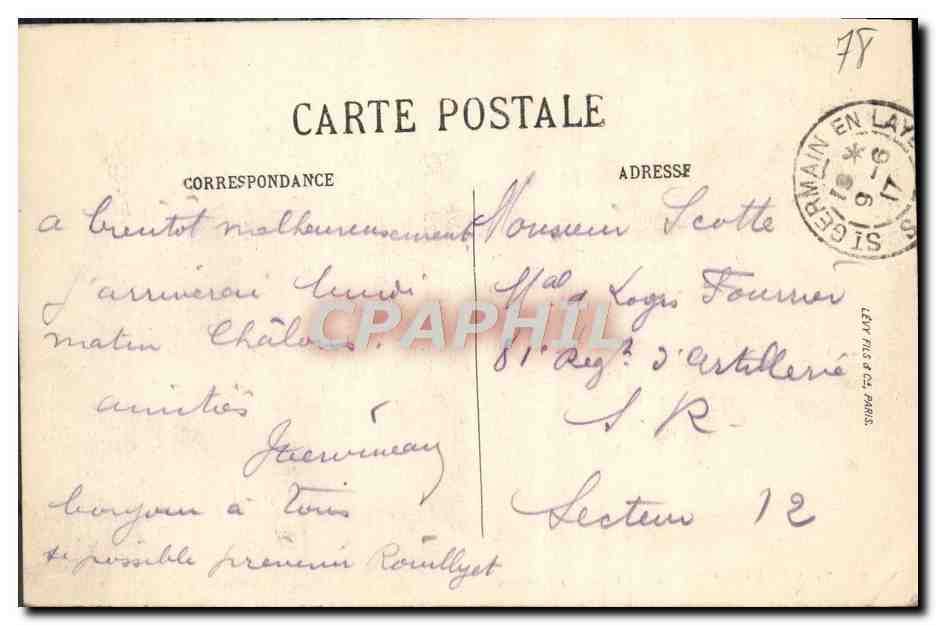 78
CARTE POSTALE
ST GERMAIN EN LAYE
19 * 9 -6 17
CORRESPONDANCE
a bientôt malheureusement
j'arriverai lundi
matin Châlons.
amitiés
bonjour à Tous
si possible prévenir Rouillyet
ADRESSE
Monsieur Scotte
Mal d Logis Fourrier
81e Regt d'Artillerie
S. R.
Secteur 12
LÉVY FILS & Cie, PARIS.
CPAPHIL